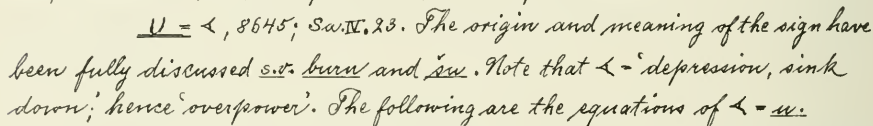 U = 𒌋, 8645; Sa.IV.23. The origin and meaning of the sign have
been fully discussed s.v. buru and šu. Note that 𒌋 = 'depression, sink
down; hence 'overpower'. The following are the equations of 𒌋 = u.